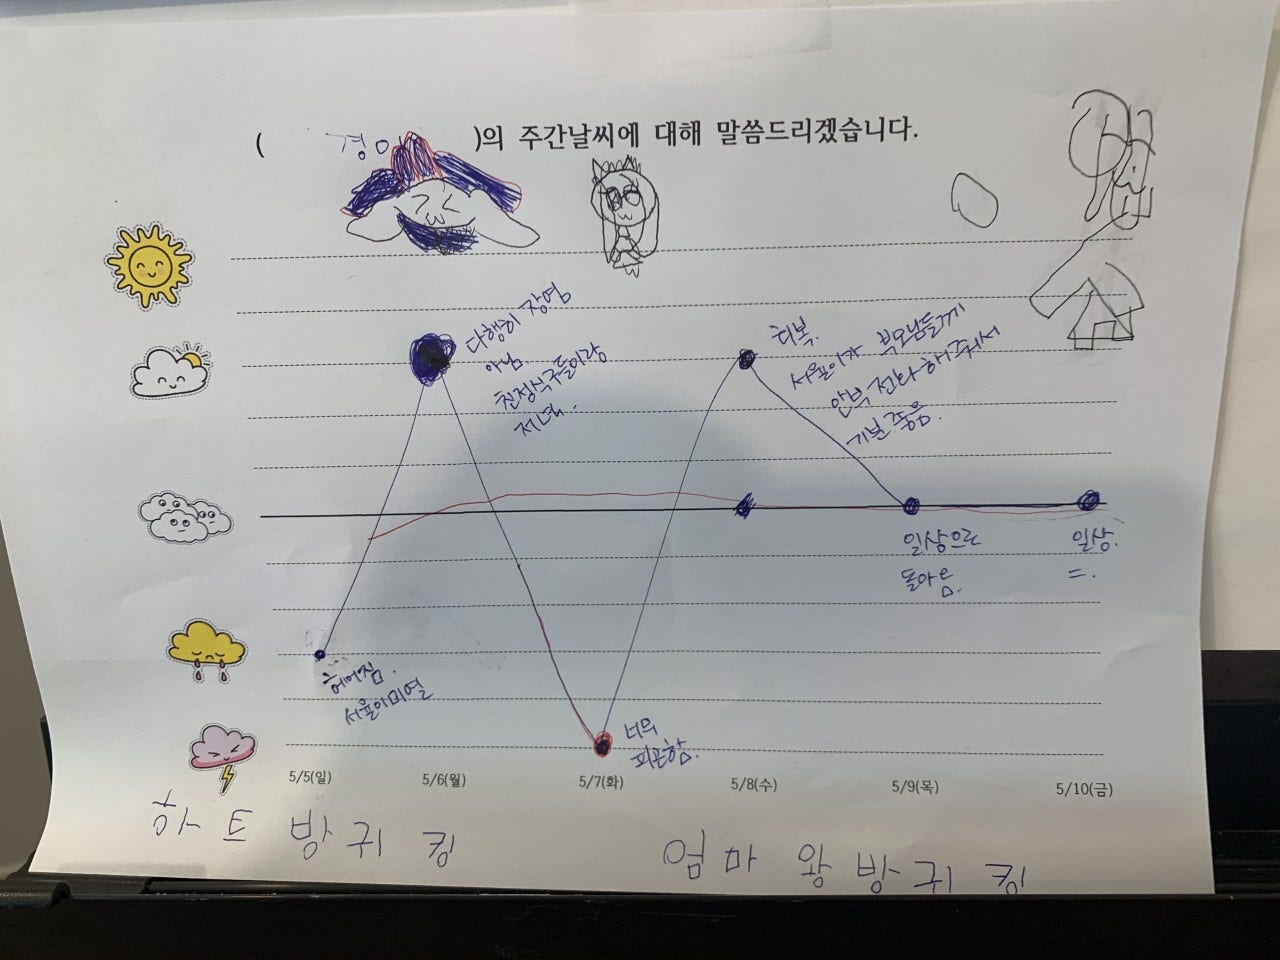 ( 경아 )의 주간날씨에 대해 말씀드리겠습니다.
다행히 장염
아님
친정식구들이랑
저녁.
회복.
서율이가 부모님들께
안부 전화 해줘서
기분 좋음.
일상으로
돌아옴.
일상.
=.
헤어짐.
서율이 미열
너무
피곤함.
5/5(일) 5/6(월) 5/7(화) 5/8(수) 5/9(목) 5/10(금)
방귀 킹
엄마 왕 방귀 킹